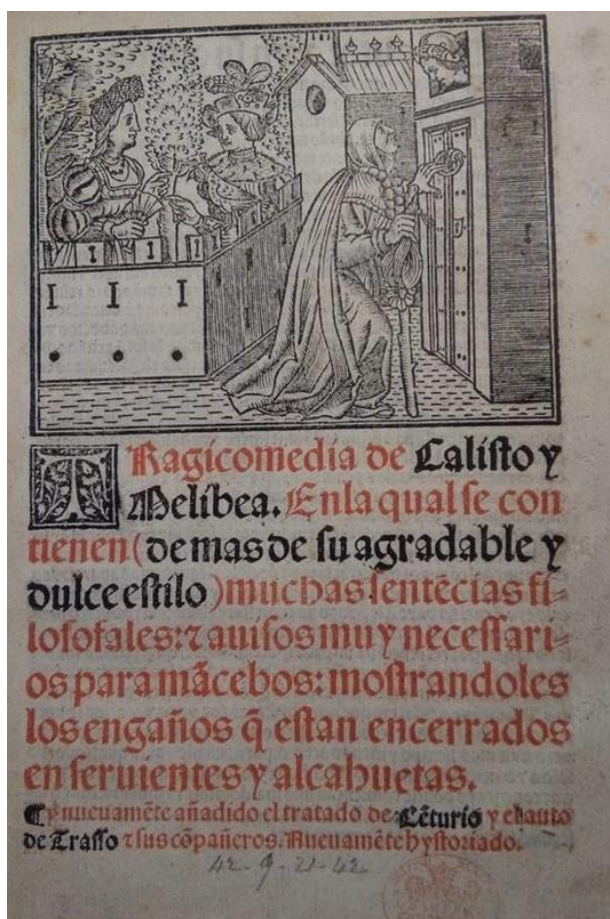 TRagicomedia de Calisto y
Melibea. Enla qual se con
tienen (de mas de su agradable y
dulce estilo) muchas sentẽcias fi=
losofales: ⁊ auisos muy necessari=
os para mãcebos: mostrandoles
los engaños q̃ estan encerrados
en seruientes y alcahuetas.
¶ y nueuamẽte añadido el tratado de Cẽturio y el auto
de Trasso ⁊ sus cõpañeros. Nueuamẽte hystoriado.
42-9-21-42